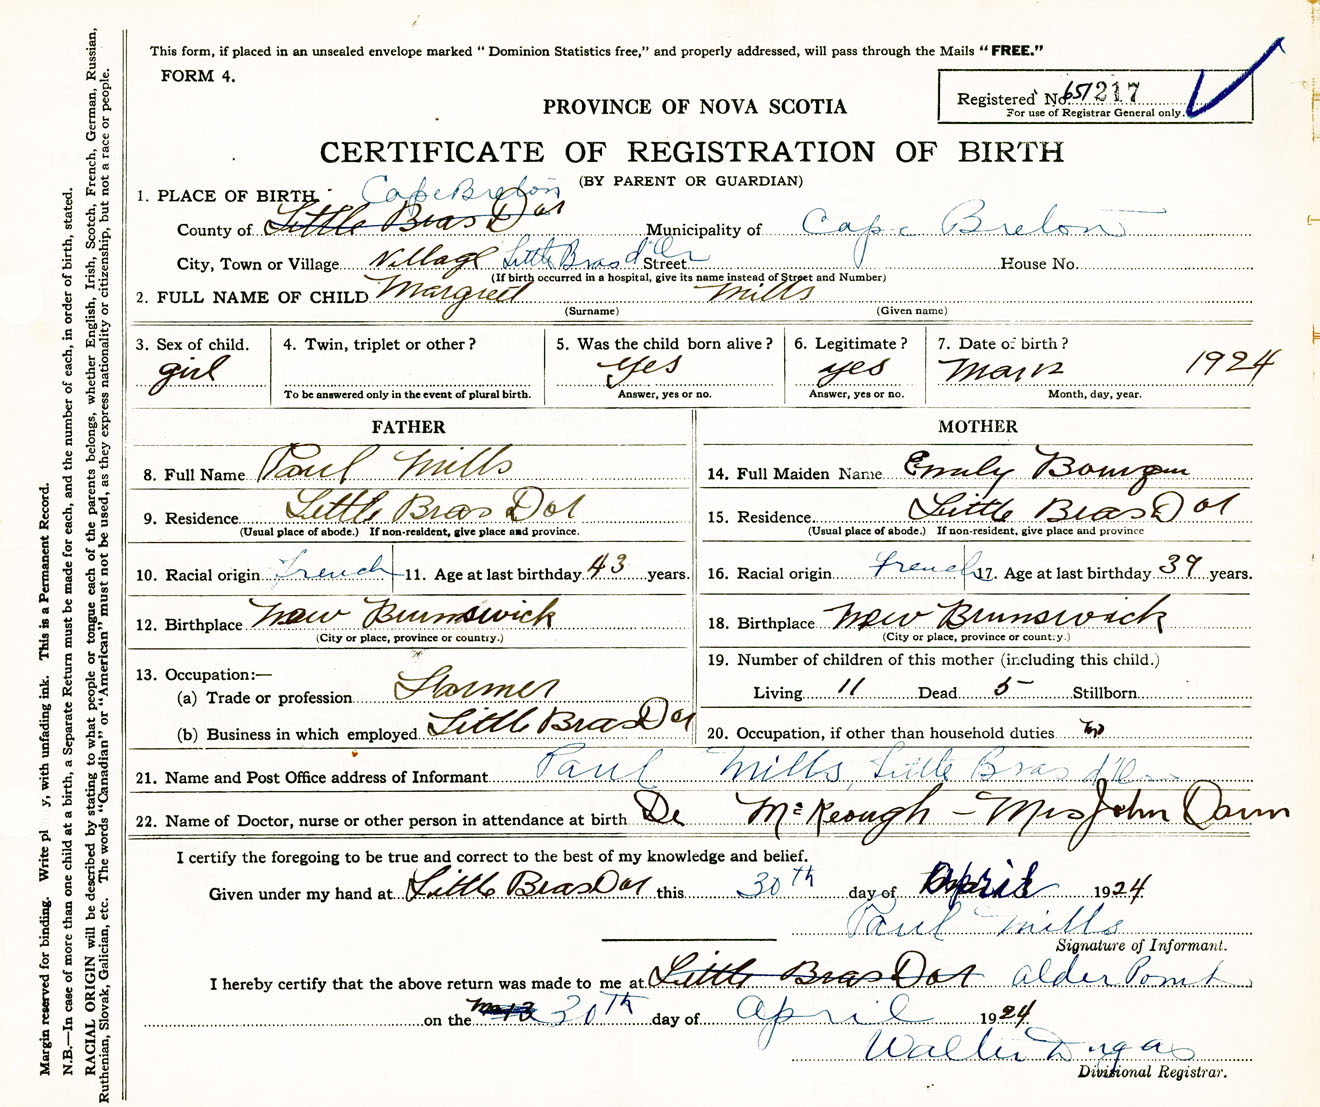 This form, if placed in an unsealed envelope marked " Dominion Statistics free," and properly addressed, will pass through the Mails " FREE."
FORM 4.
Registered No. 217
For use of Registrar General only.
PROVINCE OF NOVA SCOTIA
CERTIFICATE OF REGISTRATION OF BIRTH
(BY PARENT OR GUARDIAN)
1. PLACE OF BIRTH Cape Breton
County of Little Bras Dor Municipality of Cape Breton
City, Town or Village Village Little Bras d'Or Street House No.
(If birth occurred in a hospital, give its name instead of Street and Number)
2. FULL NAME OF CHILD Margret Mills
(Surname) (Given name)
3. Sex of child. 4. Twin, triplet or other? 5. Was the child born alive? 6. Legitimate? 7. Date of birth?
girl yes yes 1924
To be answered only in the event of plural birth. Answer, yes or no. Answer, yes or no. Month, day, year.
FATHER MOTHER
8. Full Name Paul Mills 14. Full Maiden Name Emily
9. Residence Little Bras Dor 15. Residence Little Bras Dor
(Usual place of abode.) If non-resident, give place and province. (Usual place of abode.) If non-resident, give place and province
10. Racial origin French 11. Age at last birthday 43 years. 16. Racial origin French 17. Age at last birthday 39 years.
12. Birthplace New Brunswick 18. Birthplace New Brunswick
(City or place, province or country.) (City or place, province or country.)
13. Occupation:— 19. Number of children of this mother (including this child.)
(a) Trade or profession Living 11 Dead 5 Stillborn
(b) Business in which employed Little Bras Dor 20. Occupation, if other than household duties no
21. Name and Post Office address of Informant Paul Mills, Little Bras d'Or
22. Name of Doctor, nurse or other person in attendance at birth Dr McKeough - Mrs John Dann
I certify the foregoing to be true and correct to the best of my knowledge and belief.
Given under my hand at Little Bras Dor this 30th day of April 1924
Paul Mills
Signature of Informant.
I hereby certify that the above return was made to me at Little Bras Dor alder Point
on the 30th day of April 1924
Walter Dugas
Divisional Registrar.
Margin reserved for binding. Write y, with unfading ink. This is a Permanent Record.
N.B.—In case of more than one child at a birth, a Separate Return must be made for each, and the number of each, in order of birth, stated.
RACIAL ORIGIN will be described by stating to what people or tongue each of the parents belongs, whether English, Irish, Scotch, French, German, Russian,
Ruthenian, Slovak, Galician, etc. The words "Canadian" or "American" must not be used, as they express nationality or citizenship, but not a race or people.